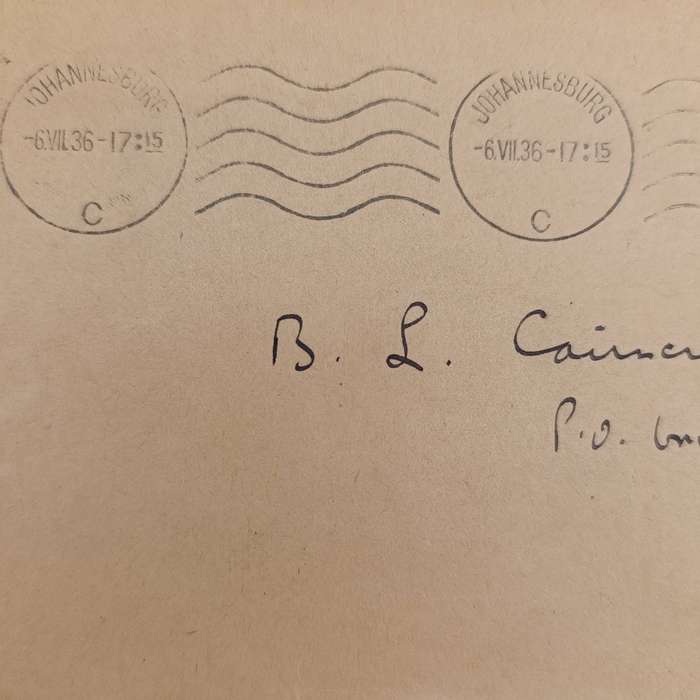 JOHANNESBURG
-6.VII.36-17:15
C
JOHANNESBURG
-6.VII.36-17:15
C
B. L. Cairncr
P.O.